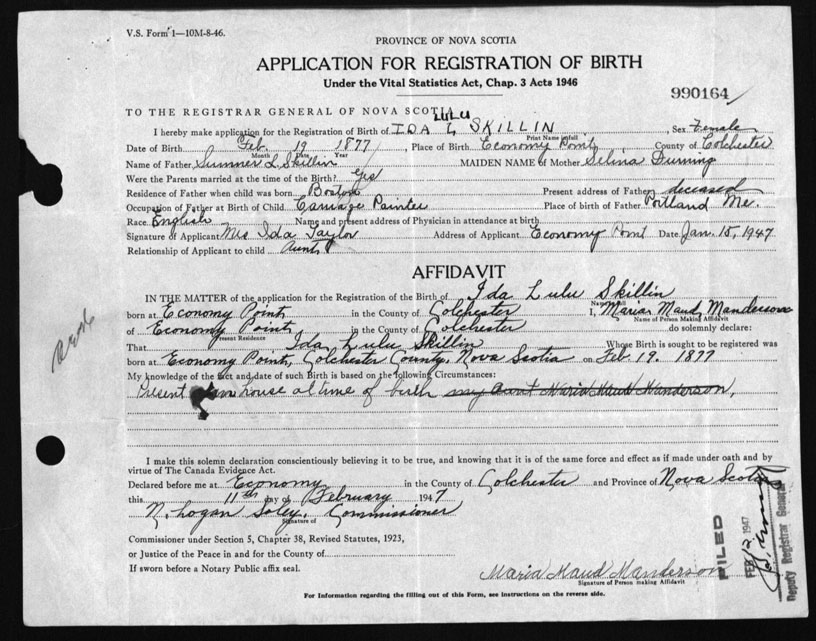 V.S. Form 1—10M-8-46.
PROVINCE OF NOVA SCOTIA
APPLICATION FOR REGISTRATION OF BIRTH
Under the Vital Statistics Act, Chap. 3 Acts 1946
990164
TO THE REGISTRAR GENERAL OF NOVA SCOTIA
LULU
I hereby make application for the Registration of Birth of IDA L SKILLIN, Sex Female
Print Name in full
Date of Birth Feb. 19 1877, Place of Birth Economy Point, County of Colchester
Month Day Year
Name of Father Sumner L Skillin MAIDEN NAME of Mother Selina Durning
Were the Parents married at the time of the Birth? Yes
Residence of Father when child was born Boston Present address of Father deceased
Occupation of Father at Birth of Child Carriage Painter Place of birth of Father Portland Me.
Race English Name and present address of Physician in attendance at birth
Signature of Applicant Mrs Ida Taylor Address of Applicant Economy Point Date Jan. 15, 1947
Relationship of Applicant to child Aunt
AFFIDAVIT
IN THE MATTER of the application for the Registration of the Birth of Ida Lulu Skillin
Name in full
born at Economy Point in the County of Colchester I, Maria Maud Manderson
Name of Person Making Affidavit
of Economy Point, in the County of Colchester do solemnly declare:
Present Residence
That Ida Lulu Skillin Whose Birth is sought to be registered was
born at Economy Point, Colchester County, Nova Scotia on Feb 19. 1877
My knowledge of the fact and date of such Birth is based on the following Circumstances:
Present in house at time of birth my aunt Maria Maud Manderson,
I make this solemn declaration conscientiously believing it to be true, and knowing that it is of the same force and effect as if made under oath and by
virtue of The Canada Evidence Act.
Declared before me at Economy in the County of Colchester and Province of Nova Scotia
this 11th day of February 1947
N. Logan Soley, Commissioner
Signature of
Commissioner under Section 5, Chapter 38, Revised Statutes, 1923,
or Justice of the Peace in and for the County of
If sworn before a Notary Public affix seal.
Maria Maud Manderson
Signature of Person making Affidavit
For Information regarding the filling out of this Form, see instructions on the reverse side.
FILED
FEB 12 1947
Deputy Registrar General